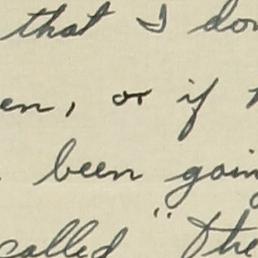 that I don
en, or if
been going
called " The